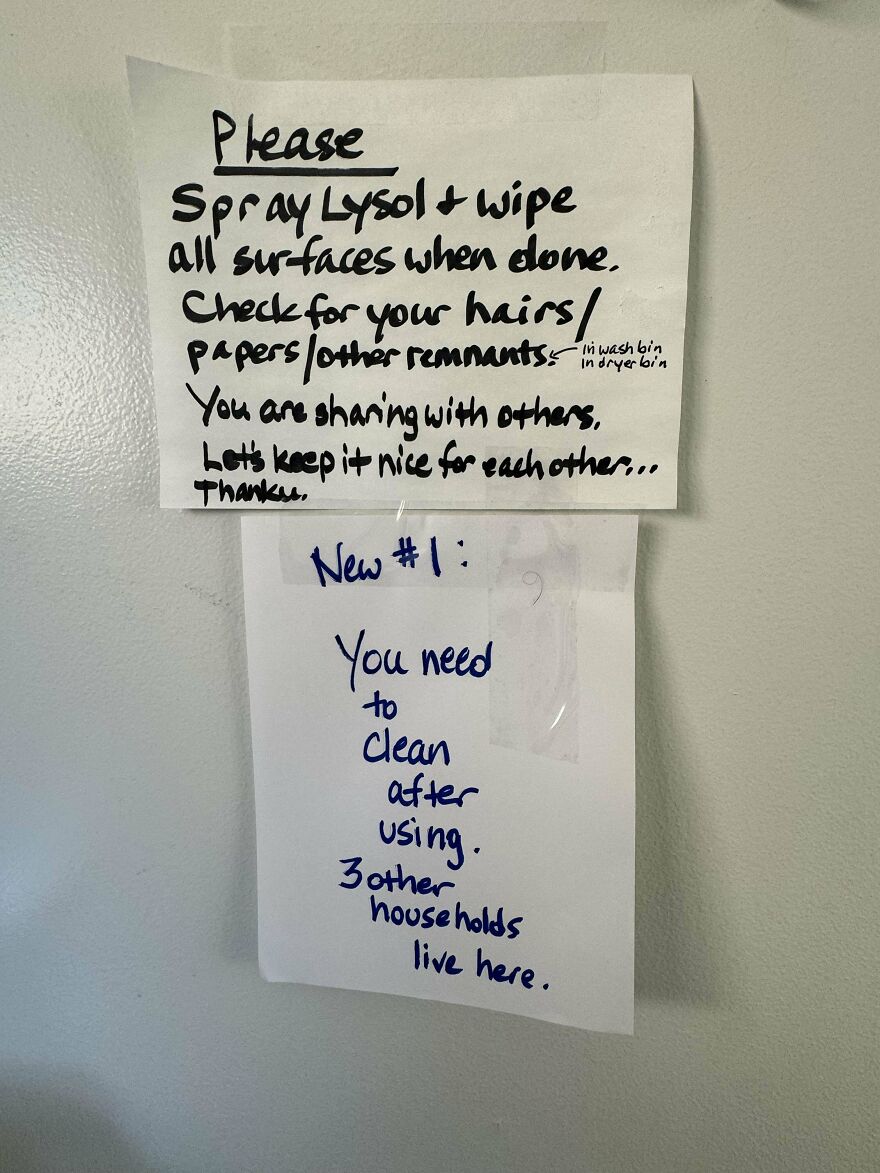 Please
Spray Lysol + wipe
all surfaces when done.
Check for your hairs/
papers/other remnants. ← in wash bin
in dryer bin
You are sharing with others.
Let's keep it nice for each other...
Thanku.
New #1:
You need
to
clean
after
using.
3 other
households
live here.